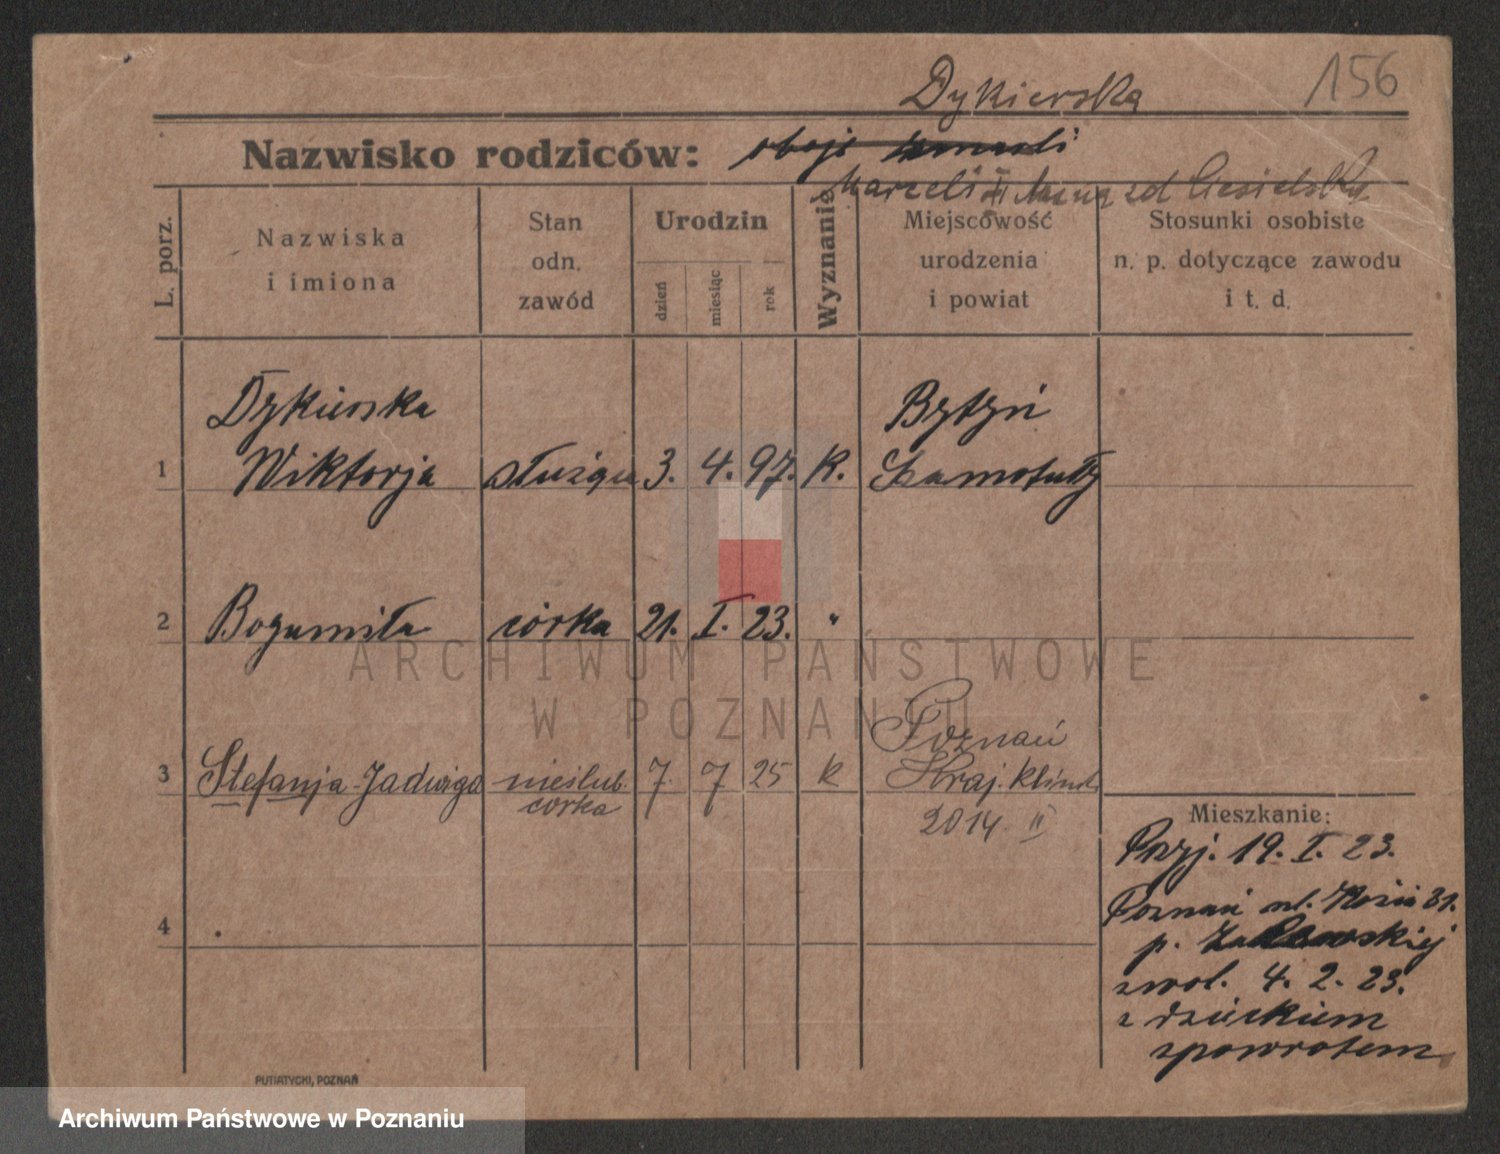 Dykierska
156
Nazwisko rodziców: oboje zmarli
Marzeli i Anna zd Ciesielsky
L. porz.
Nazwiska
i imiona
Stan
odn.
zawód
Urodzin
dzień
miesiąc
rok
Wyznanie
Miejscowość
urodzenia
i powiat
Stosunki osobiste
n. p. dotyczące zawodu
i t. d.
Dykierska
Bytyń
1 Wiktorja służąca 3. 4. 97. K. Szamotuły
2 Bogumiła córka 21. I. 23. "
ARCHIWUM PAŃSTWOWE
W POZNANIU
Poznań
3 Stefanja-Jadwiga nieślub. 7. 7 25 K Kraj.
córka
2014 II
Mieszkanie:
Przyj. 19. I. 23.
Poznań ul. 31.
p.
zwol. 4. 2. 23.
z dzieckiem
zpowrotem
4
PUTIATYCKI, POZNAŃ
Archiwum Państwowe w Poznaniu